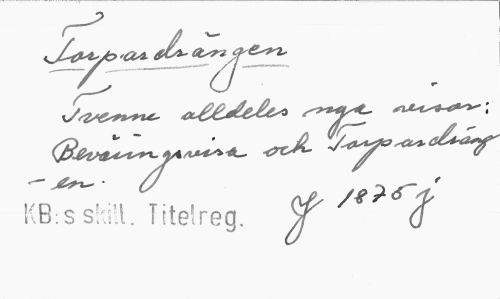 Torpardrängen
Tvenne alldeles nya visor:
Beväringsvisa och Torpardräng
-en.
KB:s skill. Titelreg.
J 1875 j